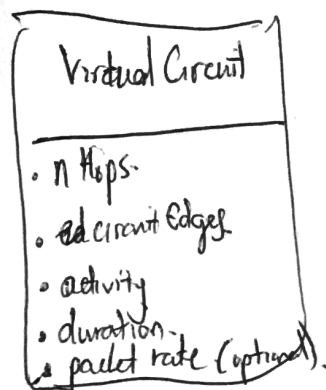 Virtual Circuit
• n Hops.
• circuit Edges
• activity
• duration.
• packet rate (optional).